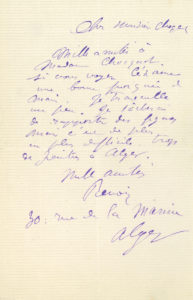 Mille amitiés à
Madame Chocquet.
si vous voyez Cézanne
une bonne poignée de
main. Je travaille
un peu. Je tâcherai
de rapporter des figures
mais c'est de plus
en plus difficile trop
de peintres à Alger.
Mille amitiés
Renoir
30. rue de la Marine
Alger